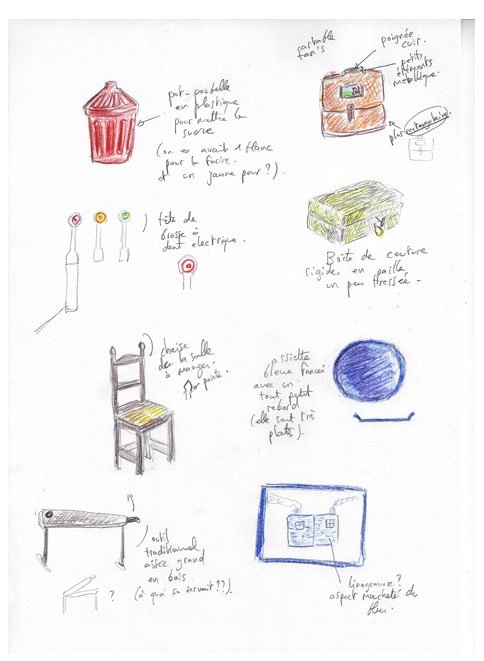 pot-poubelle
en plastique
pour mettre le
sucre
(on en avait 1 blanc
pour la farine.
et un jaune pour ?)
cartable
fan's
poignée
cuir.
petits
éléments
métallique.
plus rectangulaire.
tête de
brosse à
dent electrique.
Boîte de couture
rigide, en paille
un peu tressée.
chaise
de la salle
à manger.
assiette
bleue foncé
avec un
tout petit
rebord
(elle sont très
plates).
outil
traditionnel
assez grand
en bois
(à quoi ça servait ??).
?
linogravure ?
aspect moucheté du
bleu.